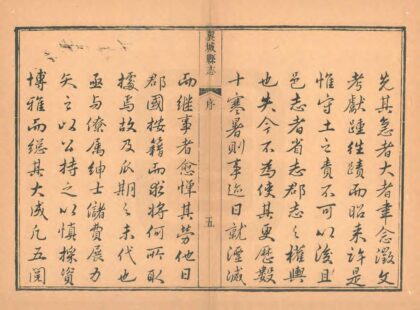 先其急者大者聿念徵文
考獻踵往蹟而昭來許是
惟守土之責不可以後且
邑志者省志郡志之權輿
也失今不為使其更歷數
十寒暑則事迹日就湮滅
翼城縣志
序
五
而繼事者愈憚其勞他日
郡國按籍而求將何所取
據焉故及瓜期之未代也
亟与僚属紳士儲費展力
矢之以公持之以慎採資
博雅而總其大成凡五閱